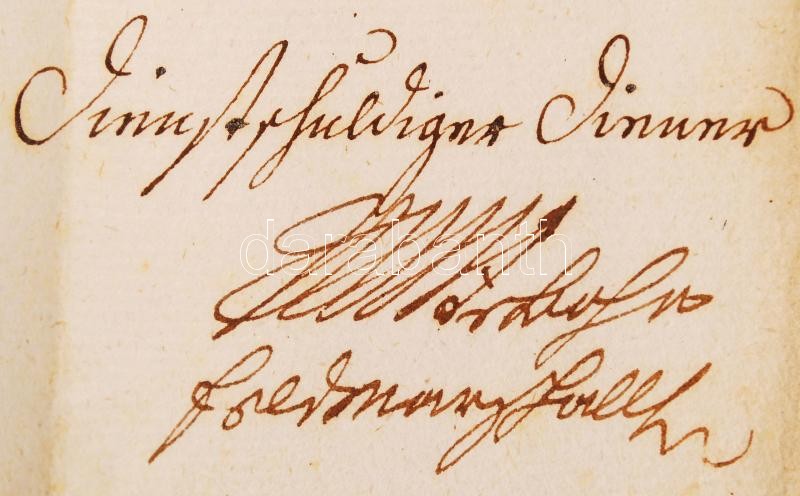 Dienstschuldiger Diener
darabanth
Feldmarschall